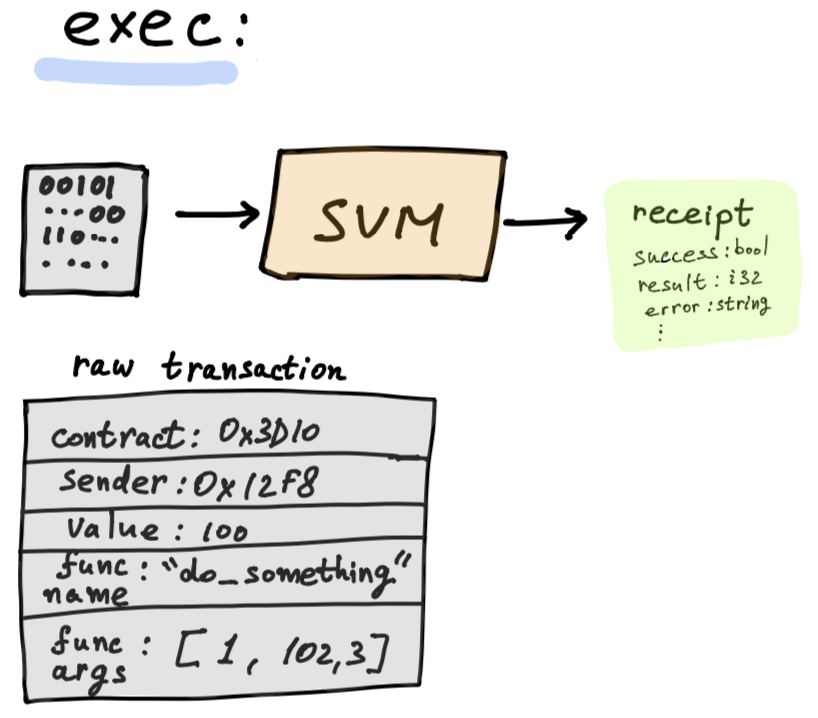 exec:
00101
...00
110...
....
SVM
receipt
success: bool
result: i32
error: string
⋮
raw transaction
contract: 0x3D10
sender: 0x12F8
value: 100
func name: "do_something"
func args: [1, 102, 3]